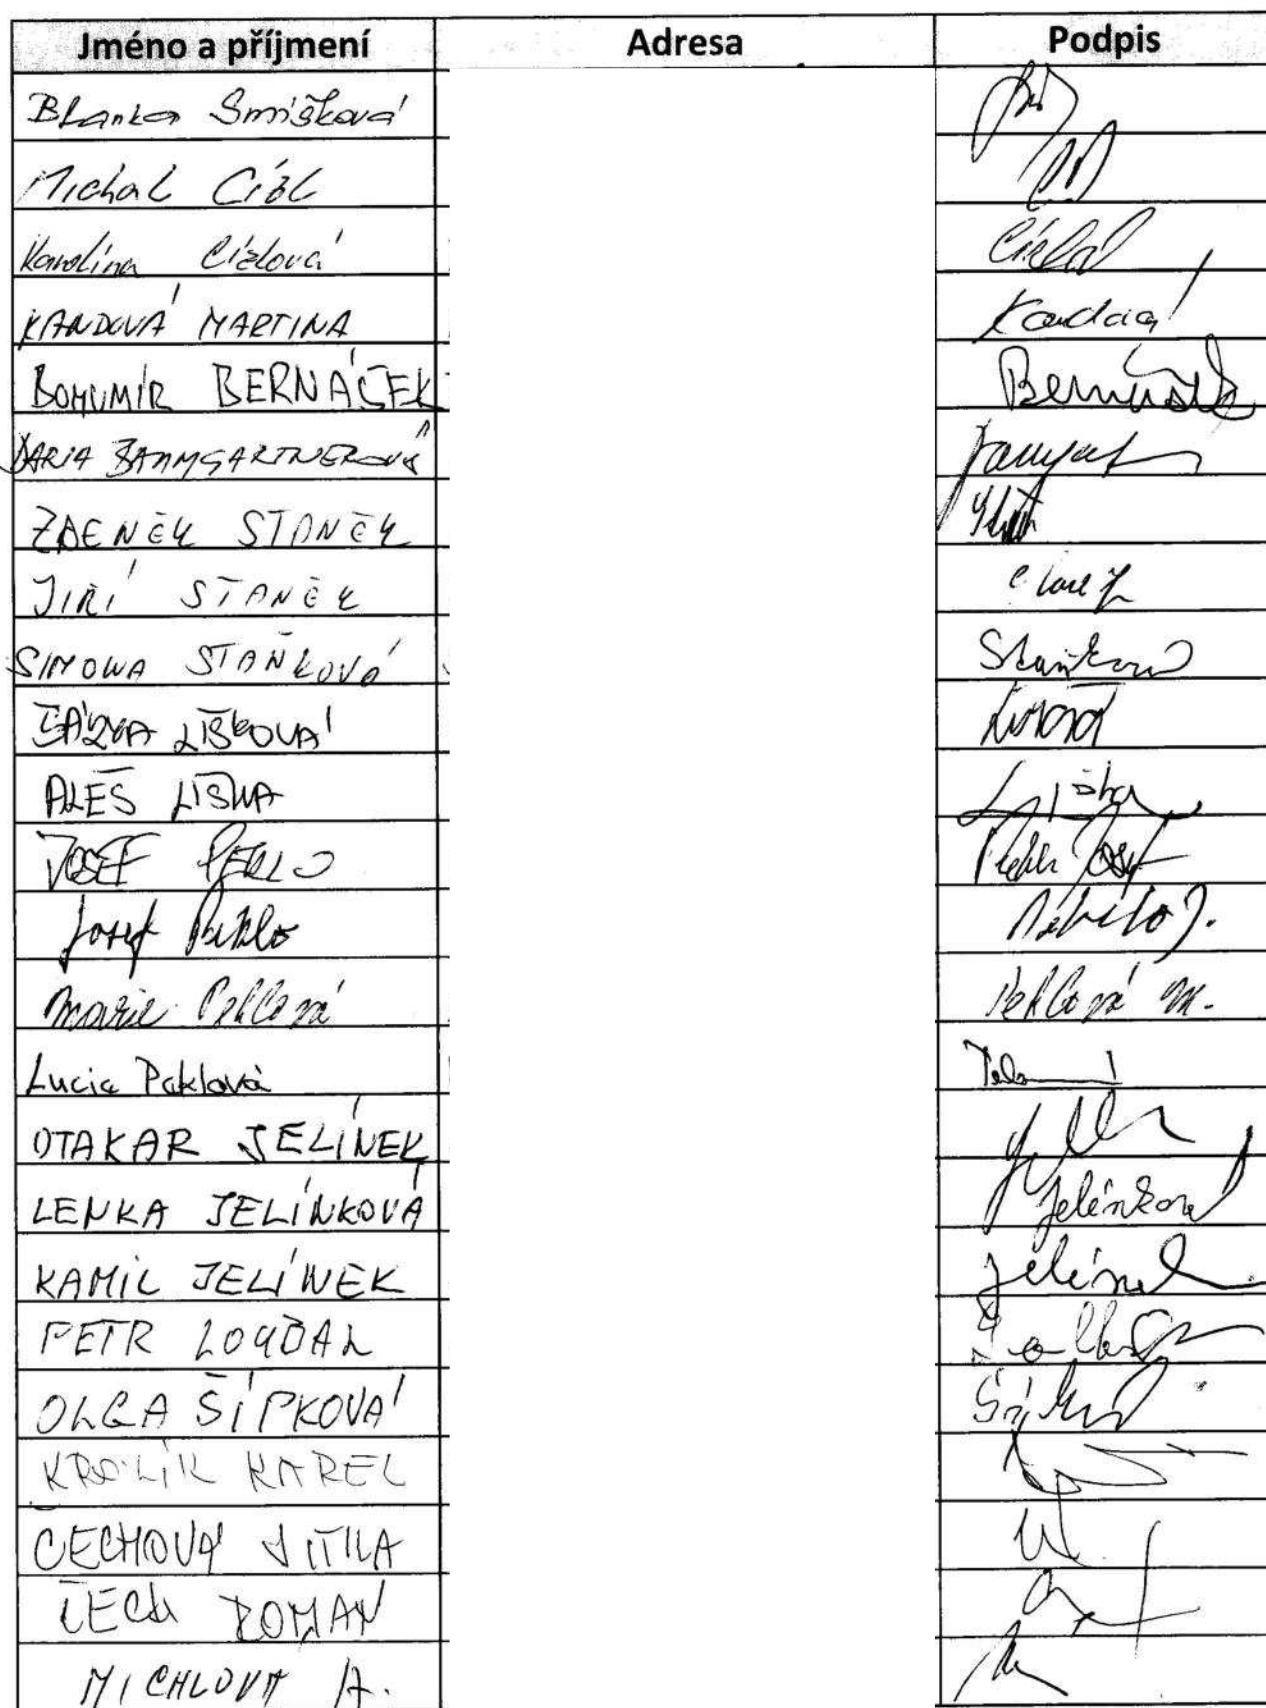 Jméno a příjmení Adresa Podpis
Blanka Smíšková
Michal Cízl
Karolína Cízlová Cízlová
KANDOVÁ MARTINA Kandová
BOHUMÍR BERNÁŠEK Bernášek
DARIA BAUMGARTNEROVÁ
ZDENĚK STANĚK
JIŘÍ STANĚK
SIMONA STAŇKOVÁ Staňková
ŠÁRKA LIŠKOVÁ
ALEŠ LIŠKA Liška
JOSEF PEKLO Peklo Josef
Josef Peklo Peklo J.
Marie Peklová Peklová M.
Lucia Peklová
OTAKAR JELÍNEK
LENKA JELÍNKOVÁ Jelínková
KAMIL JELÍNEK Jelínek
PETR
OLGA ŠÍPKOVÁ
KROLÍK KAREL
ČECHOVÁ JITKA
ČECH ROMAN
MICHLOVÁ A.